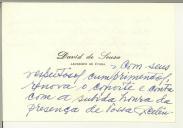 David de Sousa
com seus
respeitosos cumprimentos,
renova o convite e conta
com a subida honra da
presença de Vossa Excelên-